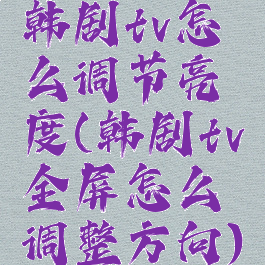 韩剧tv怎
么调节亮
度(韩剧tv
全屏怎么
调整方向)